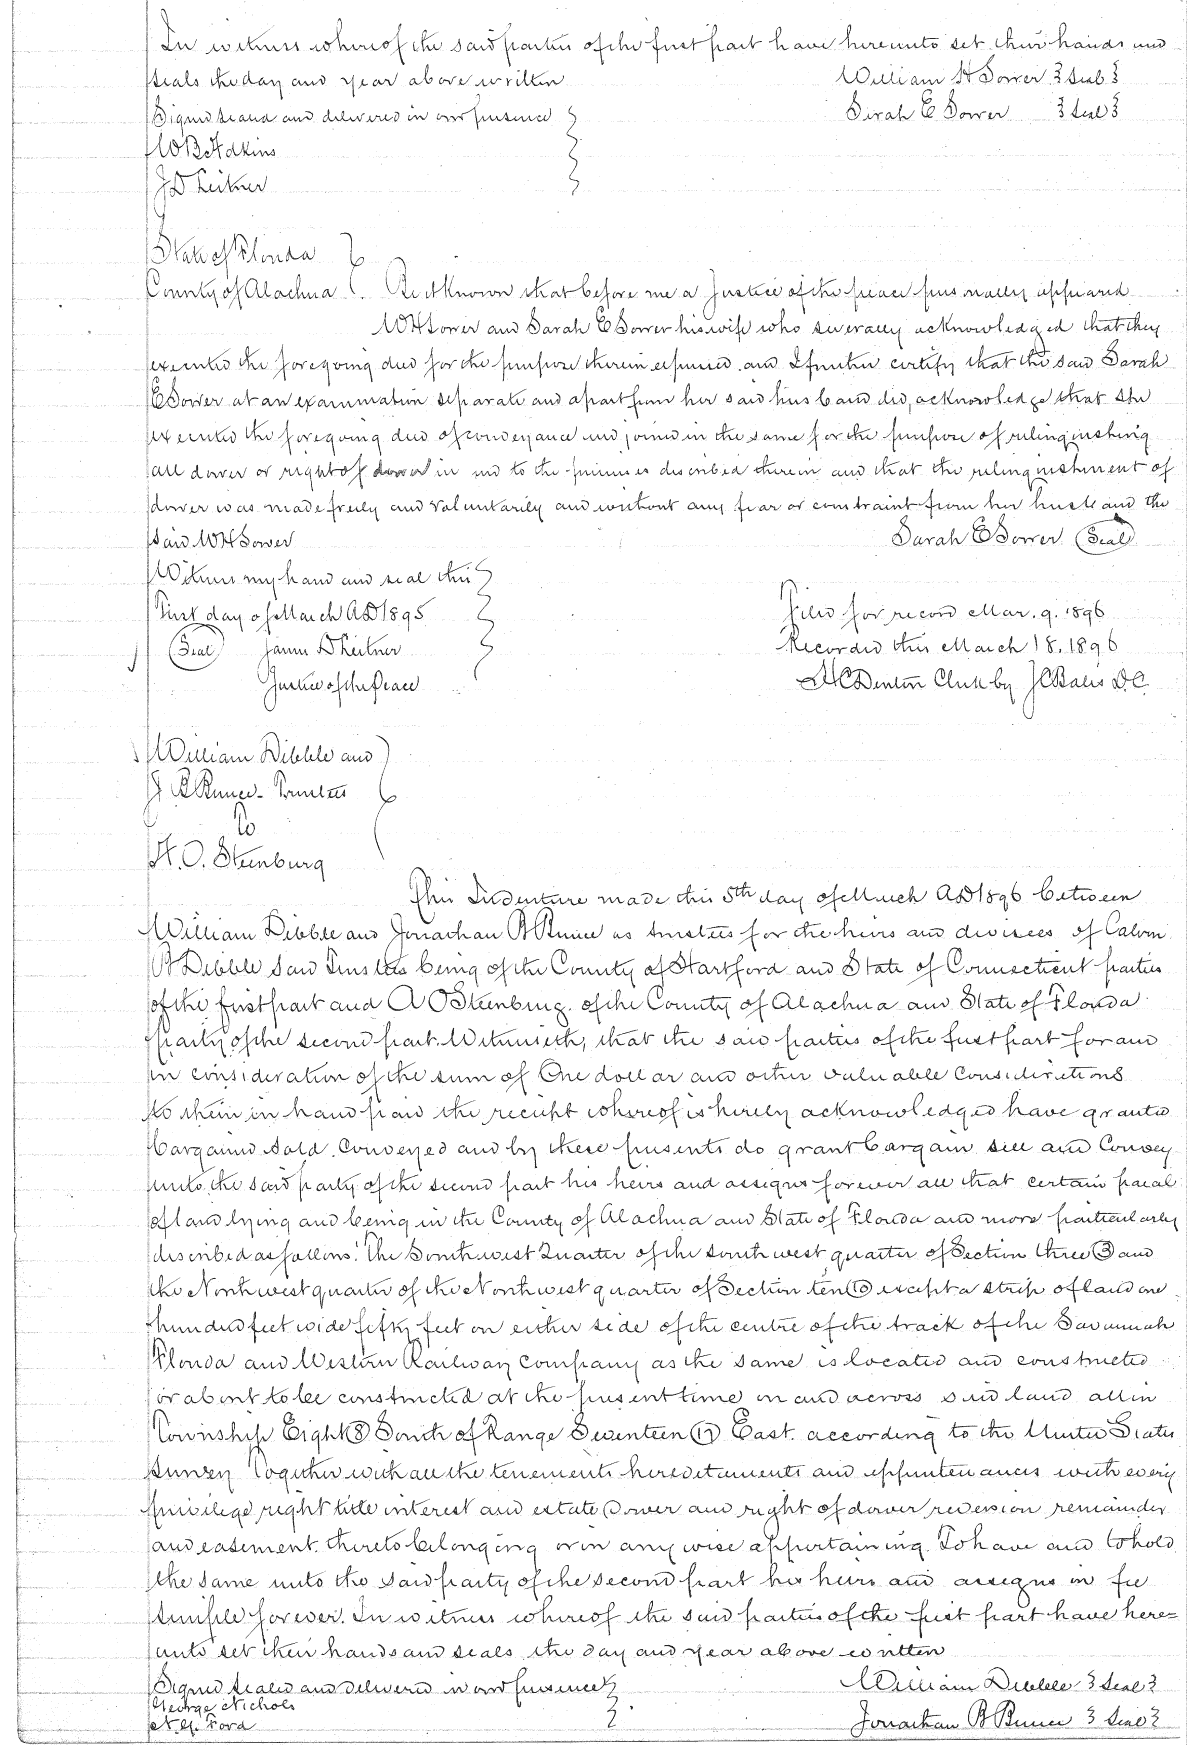 In witness whereof the said parties of the first part have hereunto set their hands and
seals the day and year above written William H Sower {Seal}
Signed sealed and delivered in our presence Sarah E Sower {Seal}
W B Adkins
J D Leitner
State of Florida
County of Alachua Be it Known that before me a Justice of the peace personally appeared
W H Sower and Sarah E Sower his wife who severally acknowledged that they
executed the foregoing deed for the purpose therein expressed and I further certify that the said Sarah
E Sower at an examination separate and apart from her said husband did, acknowledge that she
executed the foregoing deed of conveyance and joined in the same for the purpose of relinquishing
all dower or right of dower in and to the premises described therein and that the relinquishment of
dower was made freely and voluntarily and without any fear or constraint from her husband the
said W H Sower Sarah E Sower (Seal)
Witness my hand and seal this
First day of March AD 1895 Filed for record Mar. 9. 1896
(Seal) James D Leitner Recorded this March 18. 1896
Justice of the Peace H C Denton Clerk by J C Bales D.C.
William Dibble and
J B Bunce - Trustees
To
H. O. Steenburg
This Indenture made this 5th day of March AD 1896 between
William Dibble and Jonathan B Bunce as trustees for the heirs and divisees of Calvin
B Dibble said Trustees being of the County of Hartford and State of Connecticut parties
of the first part and A O Steenburg. of the County of Alachua and State of Florida
party of the second part. Witnesseth, that the said parties of the first part for and
in consideration of the sum of One dollar and other valuable Considerations
to them in hand paid the receipt whereof is hereby acknowledged have granted
bargained sold conveyed and by these presents do grant bargain sell and Convey
unto the said party of the second part his heirs and assigns forever all that certain parcel
of land lying and being in the County of Alachua and State of Florida and more particularly
described as follows. The Southwest Quarter of the southwest quarter of Section three (3) and
the Northwest quarter of the Northwest quarter of Section ten (10) except a strip of land one
hundred feet wide fifty feet on either side of the centre of the track of the Savannah
Florida and Western Railway Company as the same is located and constructed
or about to be constructed at the present time on and across said land all in
Township Eight (8) South of Range Seventeen (17) East. according to the United States
Survey Together with all the tenements hereditaments and appurtenances with every
privilege right title interest and estate Dower and right of dower reversion remainder
and easement thereto belonging or in any wise appertaining To have and to hold
the same unto the said party of the second part his heirs and assigns in fee
simple forever. In witness whereof the said parties of the first part have here=
unto set their hands and seals the day and year above written
Signed sealed and delivered in our presence William Dibble {Seal}
George Nichols
N. G. Ford Jonathan B Bunce {Seal}